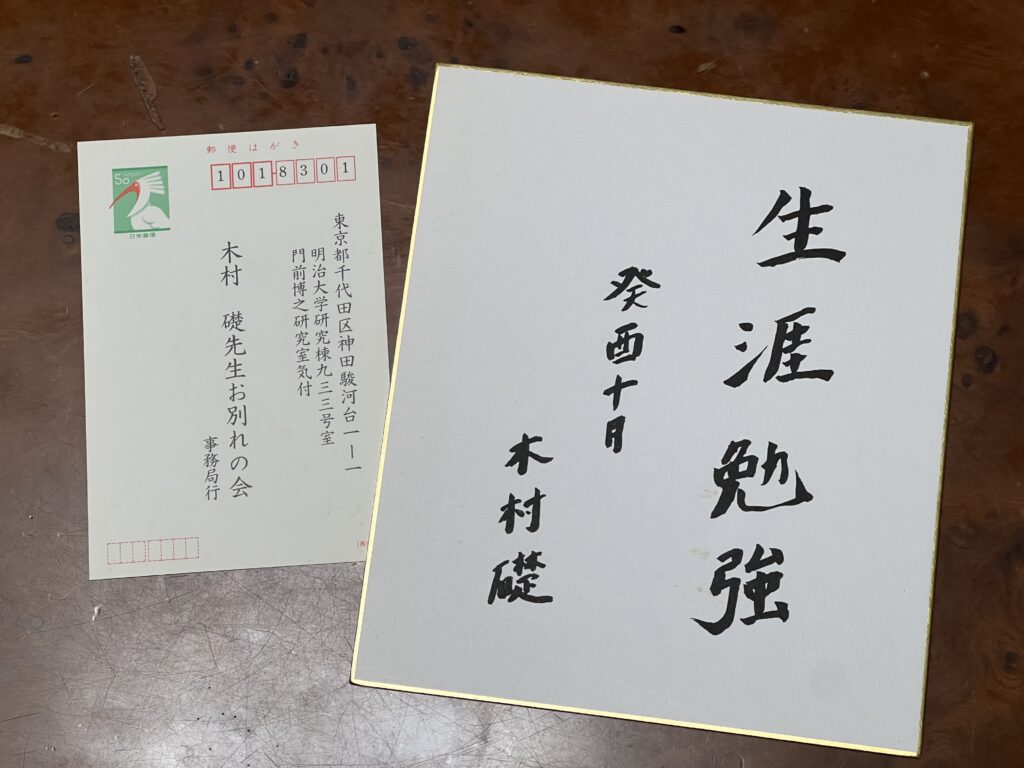 郵便はがき
50
日本郵便
1018301
東京都千代田区神田駿河台一ー一
明治大学研究棟九三三号室
門前博之研究室気付
木村 礎先生お別れの会
事務局行
生涯勉強
癸酉十月
木村礎